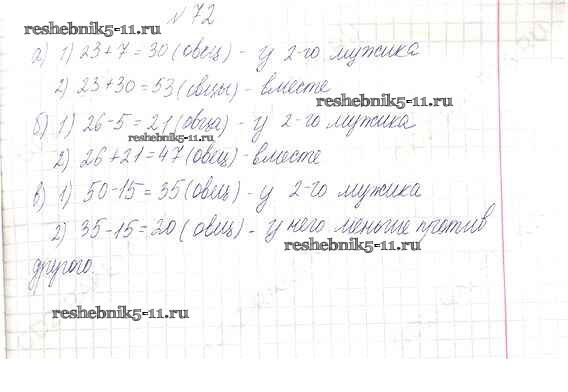 № 72
reshebnik5-11.ru
а) 1) 23+7=30 (овец) - у 2-го мужика
reshebnik5-11.ru
2) 23+30=53 (овцы) - вместе
reshebnik5-11.ru
б) 1) 26-5=21 (овца) - у 2-го мужика
reshebnik5-11.ru
2) 26+21=47 (овец) - вместе
в) 1) 50-15=35 (овец) - у 2-го мужика
2) 35-15=20 (овец) - у него меньше против
reshebnik5-11.ru
другого.
reshebnik5-11.ru